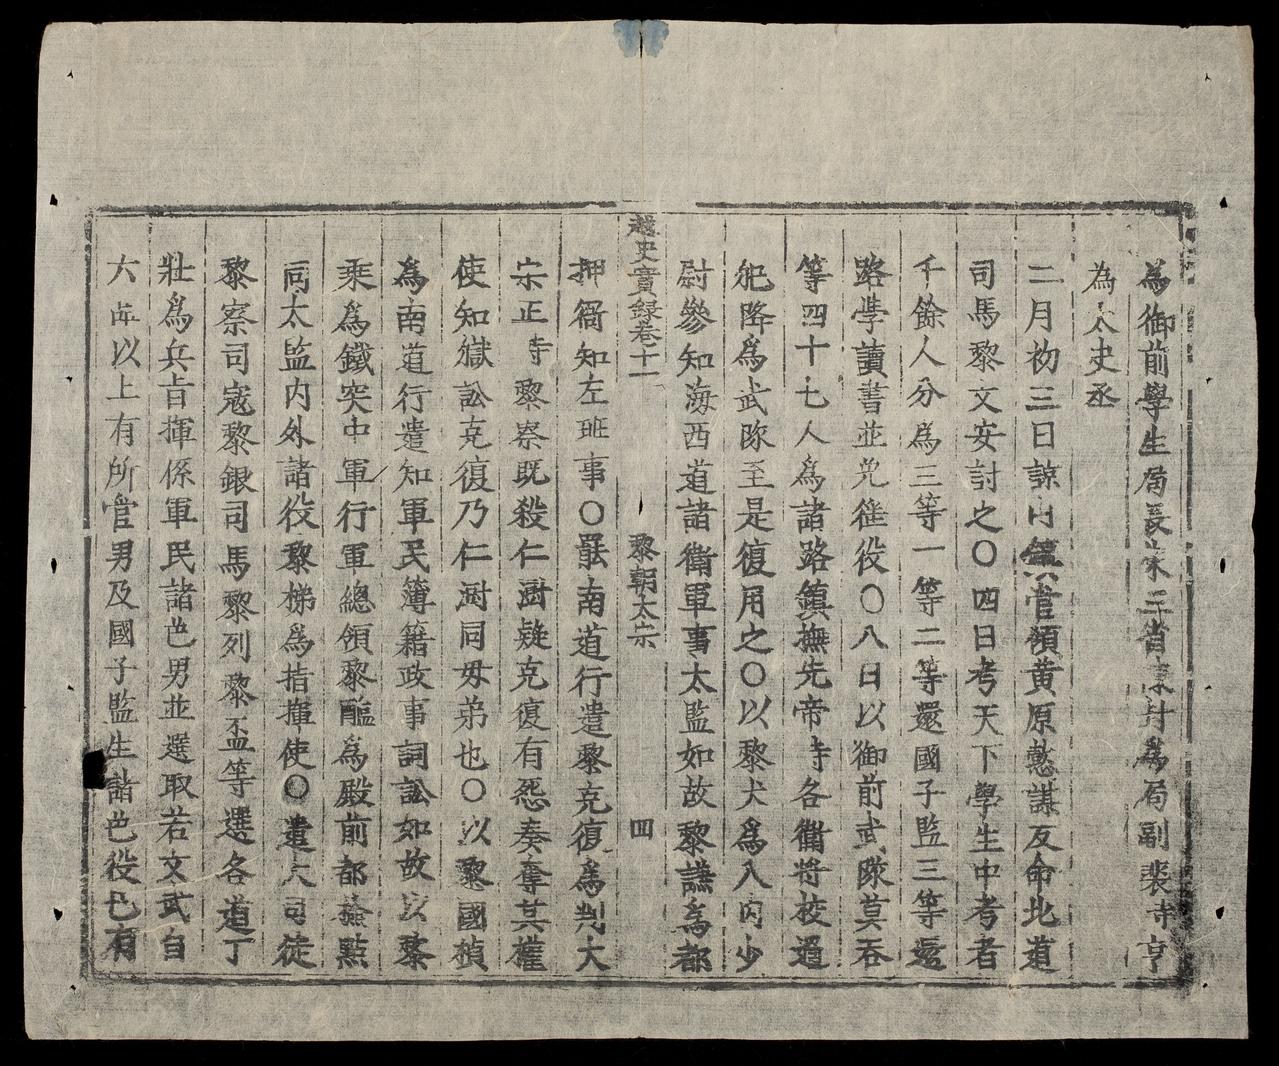 為御前學生局長朱三省陳封為局副裴時亨
為太史丞
二月初三日諒山鎮管領黄原懿謀反命北道
司馬黎文安討之〇四日考天下學生中考者
千餘人分為三等一等二等還國子監三等還
路學讀書並免徭役〇八日以御前武隊莫吞
等四十七人為諸路鎮撫先帝時各衞將校過
犯降為武隊至是復用之〇以黎犬為入内少
尉參知海西道諸衛軍事太監如故黎讌為都
越史實録卷十一 黎朝太宗 四
押衙知左班事〇罷南道行遣黎克復為判大
宗正寺黎察既殺仁澍疑克復有怨奏奪其權
使知獄訟克復乃仁澍同母弟也〇以黎國楨
為南道行遣知軍民簿籍政事詞訟如故以黎
乘為鐵突中軍行軍總領黎醖為殿前都檢點
同太監内外諸役黎梯為指揮使〇遣大司徒
黎察司寇黎銀司馬黎列黎盃等選各道丁
壯為兵旨揮係軍民諸色男並選取若文武自
六品以上有所管男及國子監生諸色役已有